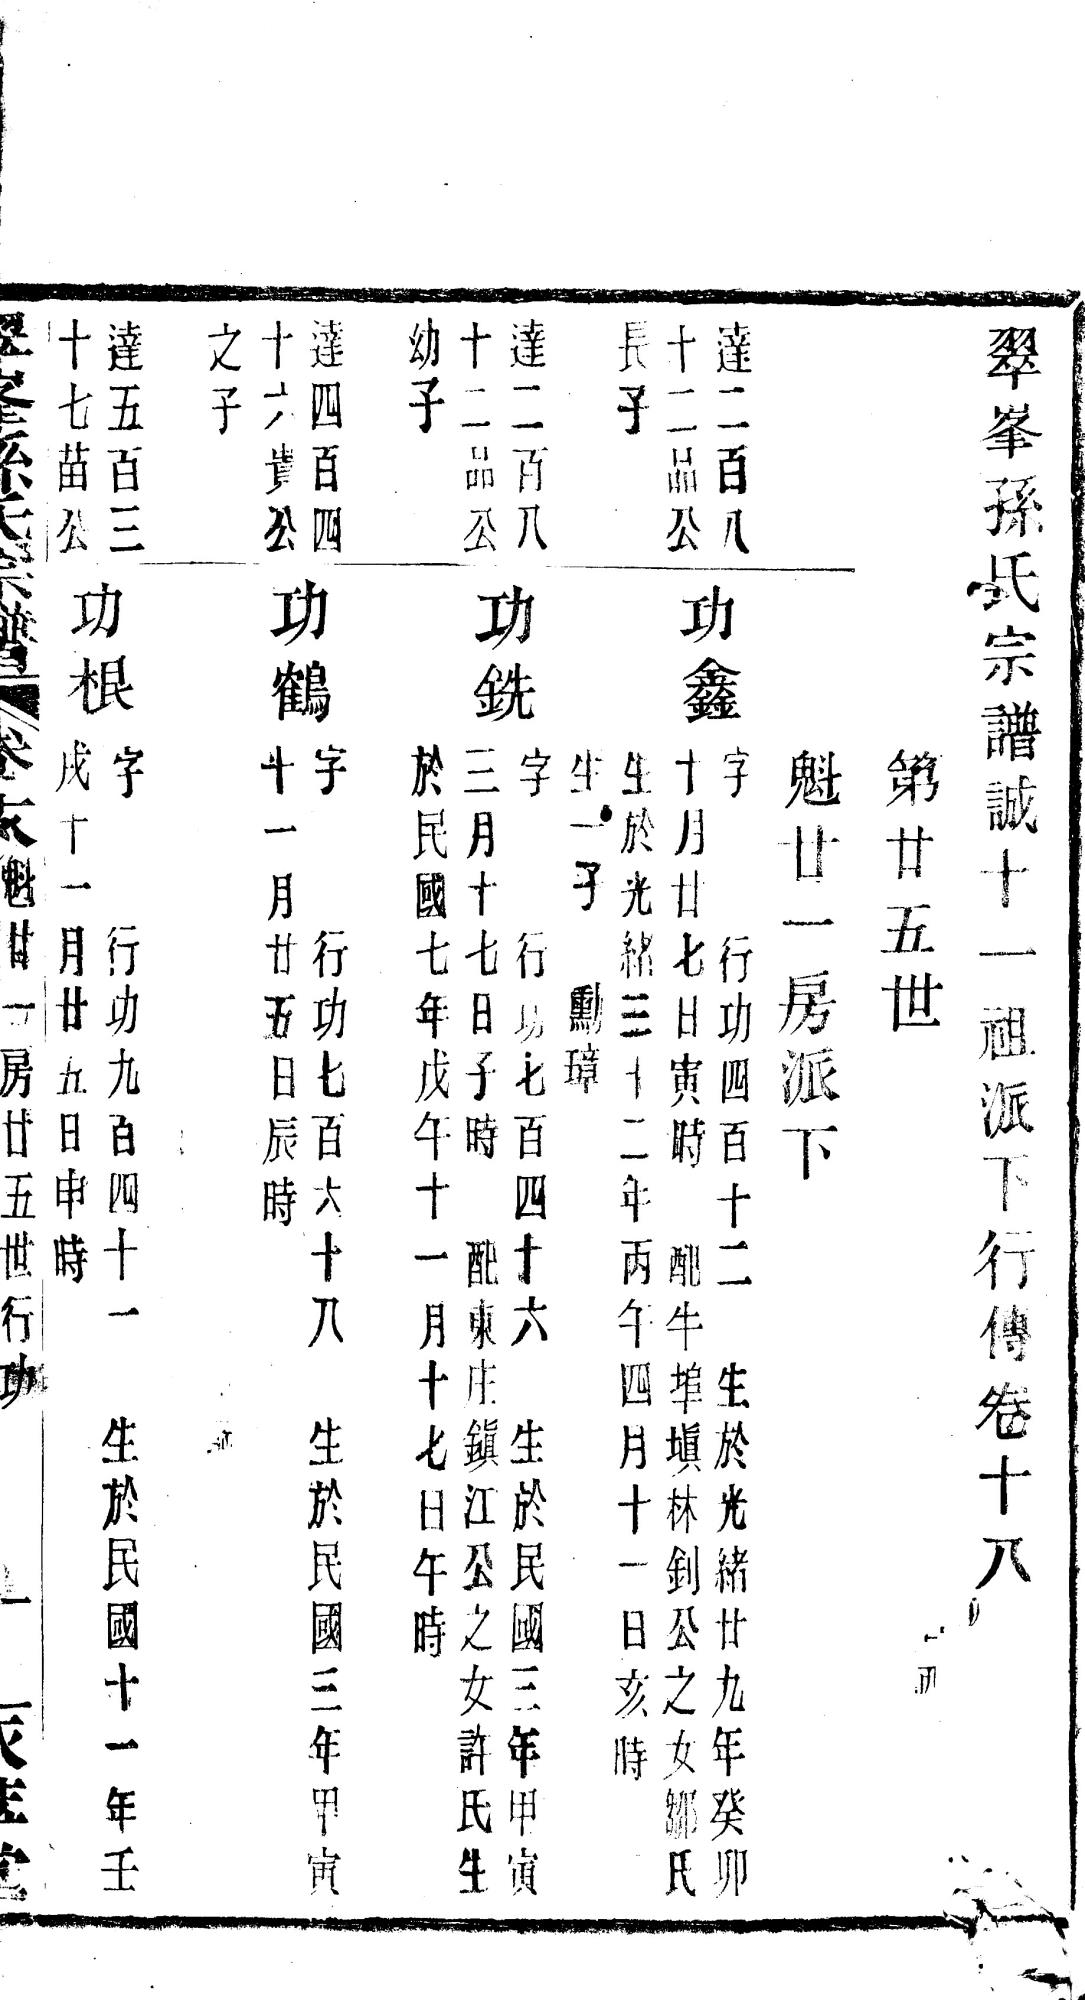 翠峯孫氏宗譜誠十一祖派下行傳卷十八
第廿五世
魁廿一房派下
達二百八
十二品公
長子
功鑫
字　行功四百十二　生於光緒廿九年癸卯
十月廿七日寅時　配牛埠塡林釗公之女鄒氏
生於光緒三十二年丙午四月十一日亥時
生一子　勳璋
達二百八
十二品公
幼子
功銑
字　行功七百四十六　生於民國三年甲寅
三月十七日子時　配東庄鎭江公之女許氏生
於民國七年戊午十一月十七日午時
達四百四
十六貴公
之子
功鶴
字　行功七百六十八　生於民國三年甲寅
十一月廿五日辰時
達五百三
十七苗公
功根
字　行功九百四十一　生於民國十一年壬
戌十一月廿五日申時
翠峯孫氏宗譜
魁廿一房廿五世行功